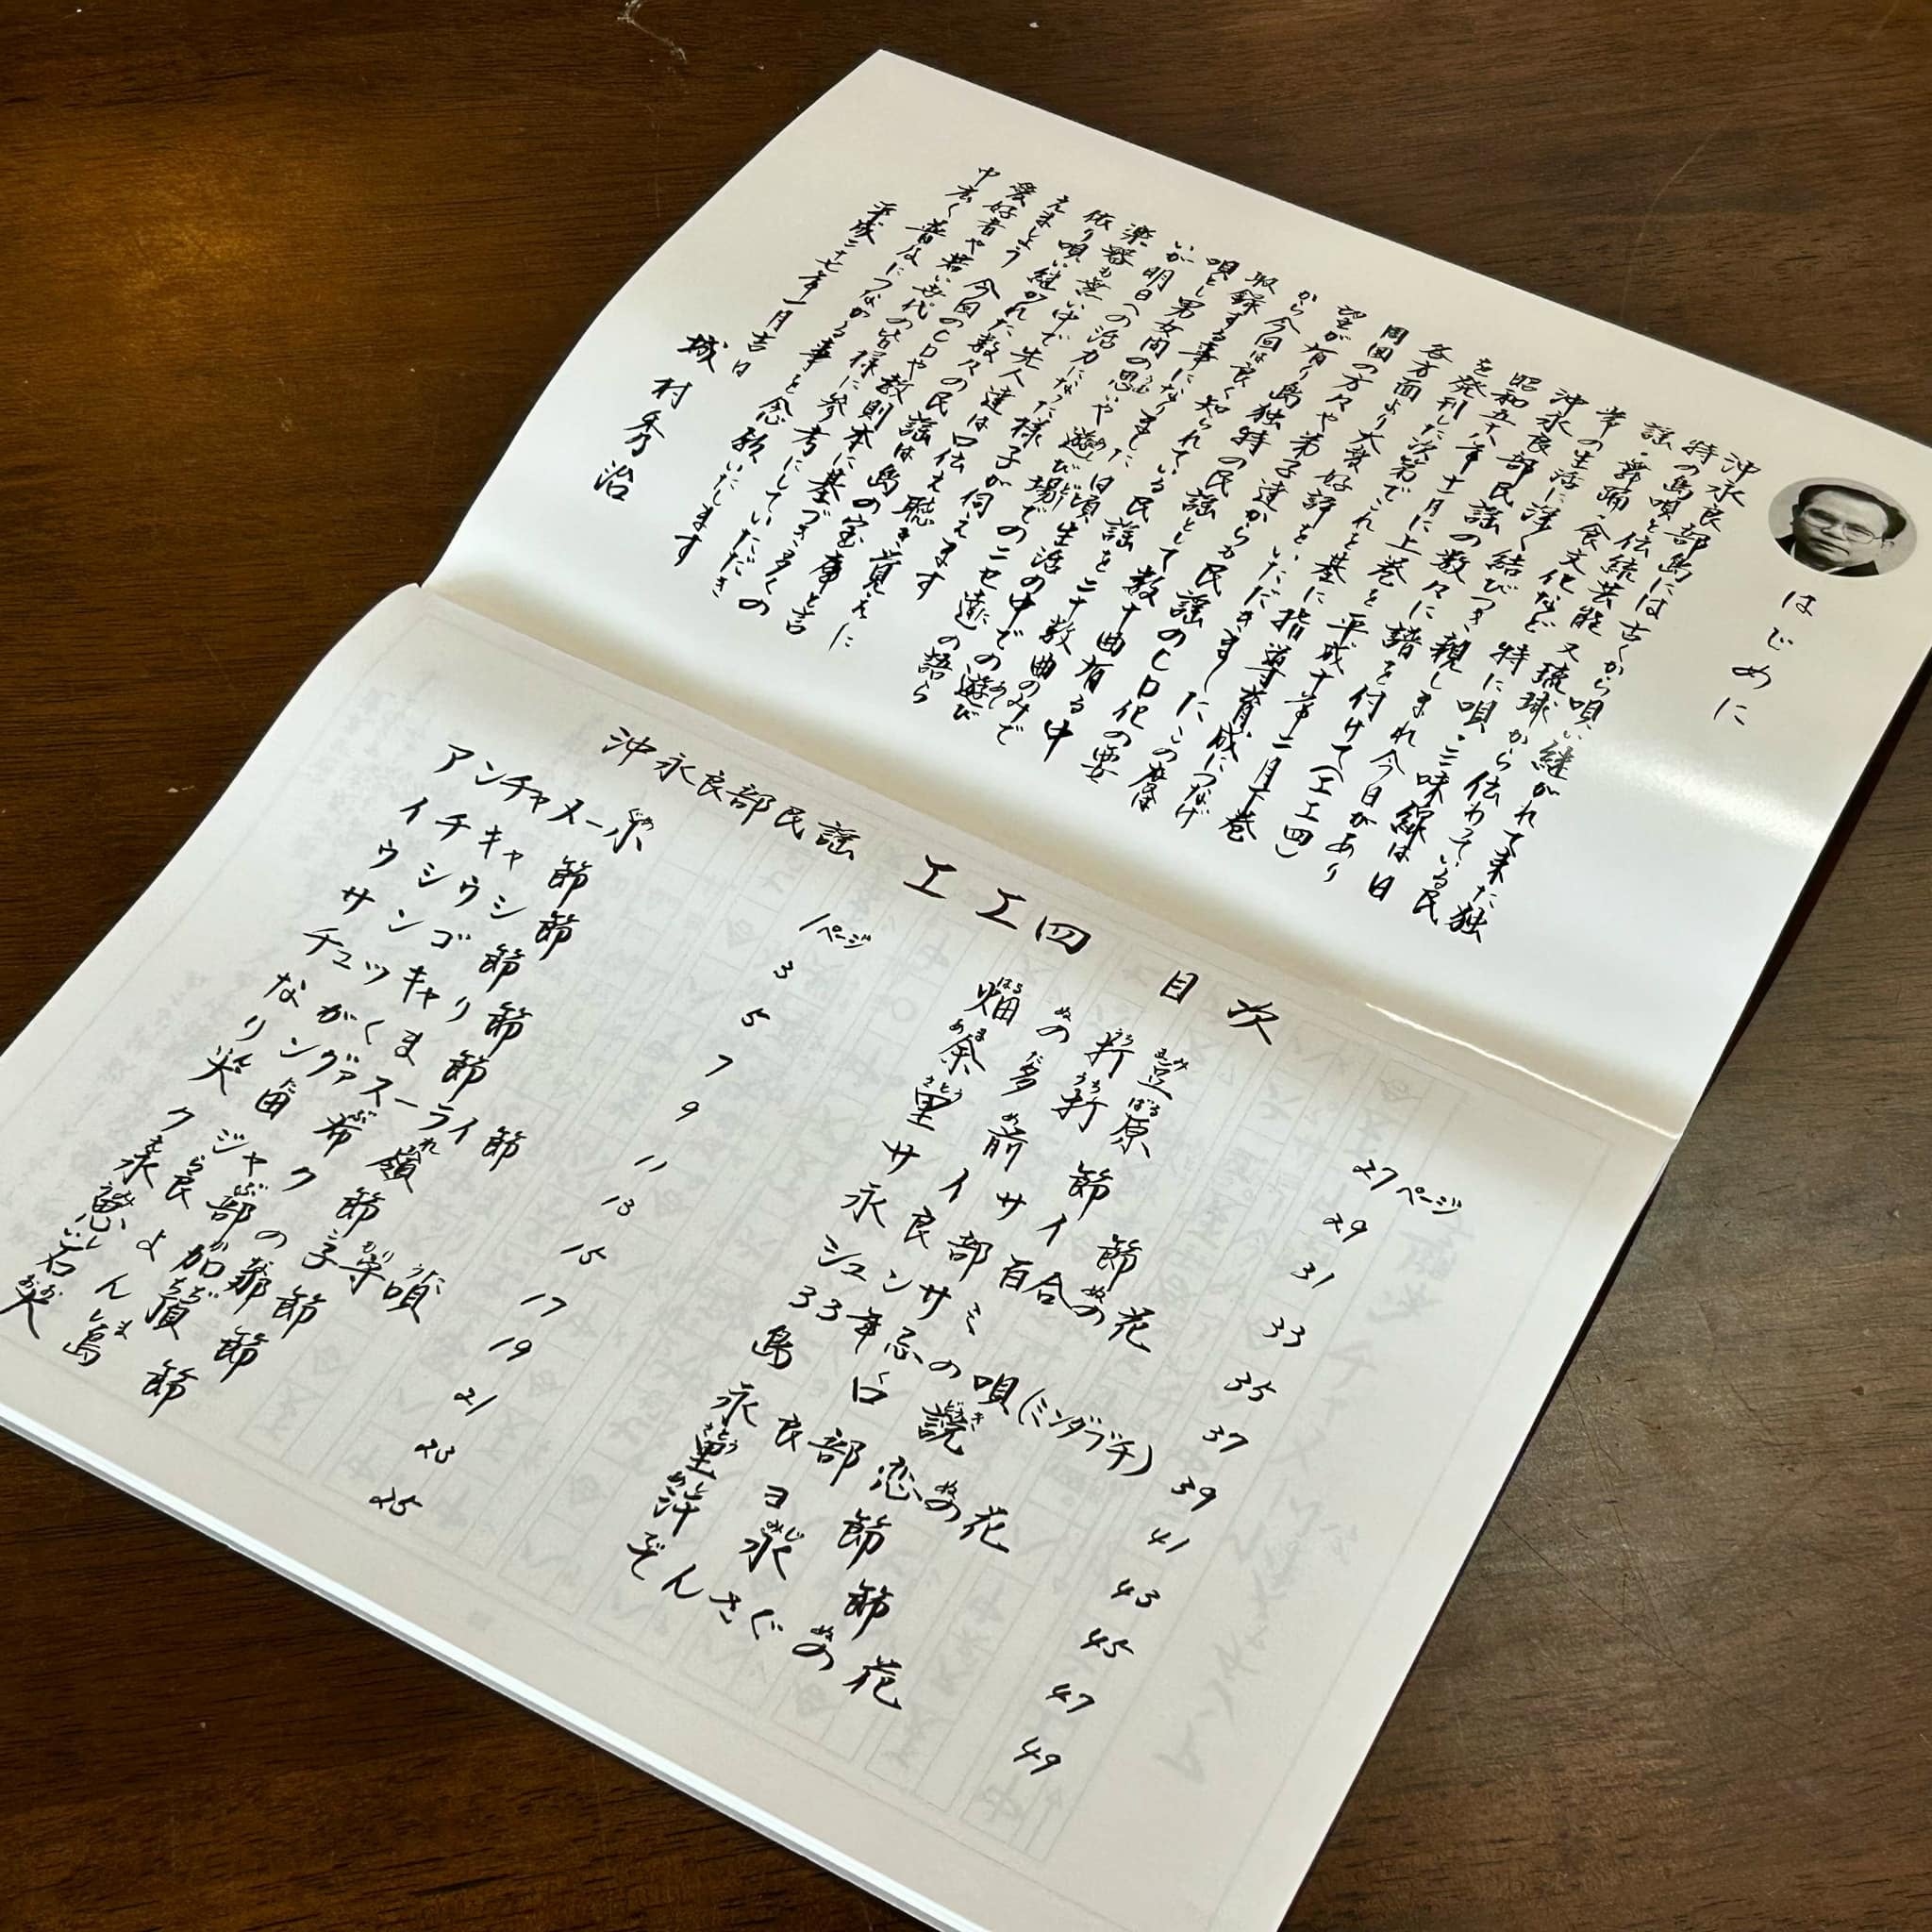 はじめに
沖永良部島には古くから唄い継がれて来た独
特の島唄と伝統芸能又琉球から伝わっている民
謡・舞踊・食文化など特に唄・三味線は日
常の生活に深く結びつき親しまれ今日があり
沖永良部民謡の数々に譜を付けて(工工四)
昭和五十八年十二月に上巻を平成十年二月下巻
を発刊した次第でこれを基に指導育成につなげ
各方面より大変好評をいただきましたこの度は
周囲の方々や弟子達から民謡のCD化の要
望が有り島独特の民謡として数十曲有る中
から今回は良く知られている民謡を二十数曲のみで
収録する事になりました日頃生活の中での遊び
唄とし男女間の思いや遊び場での二セ達の語ら
いが明日への活力になった様子が伺えます
楽器も無い中で先人達は口伝え聴き覚えに
依り唄い継がれた数々の民謡は島の宝庫と言
えましょう今回のCDや教則本に基づき多くの
愛好者や若い世代の皆様に参考にしていただき
中広く普及につながる事を念願いたします
平成二十七年一月吉日
城村秀治
沖永良部民謡 工工四 目次
アンチャメー小 1ページ
イチキャ節 3
ウシウシ節 5
サンゴ節 7
チュッキャリ節 9
ながくま節 11
リングァスーライ節 13
15
子守唄 17
19
21
23
25
27ページ
余多 原節 29
里前 節 31
サイサイ節 33
永良部百合の花 35
シュンサミ 37
33年忌の唄(ミンダブチ) 39
島口説 41
永良部恋の花 43
里ヨ節 45
節 47
ぞんさぐの花 49